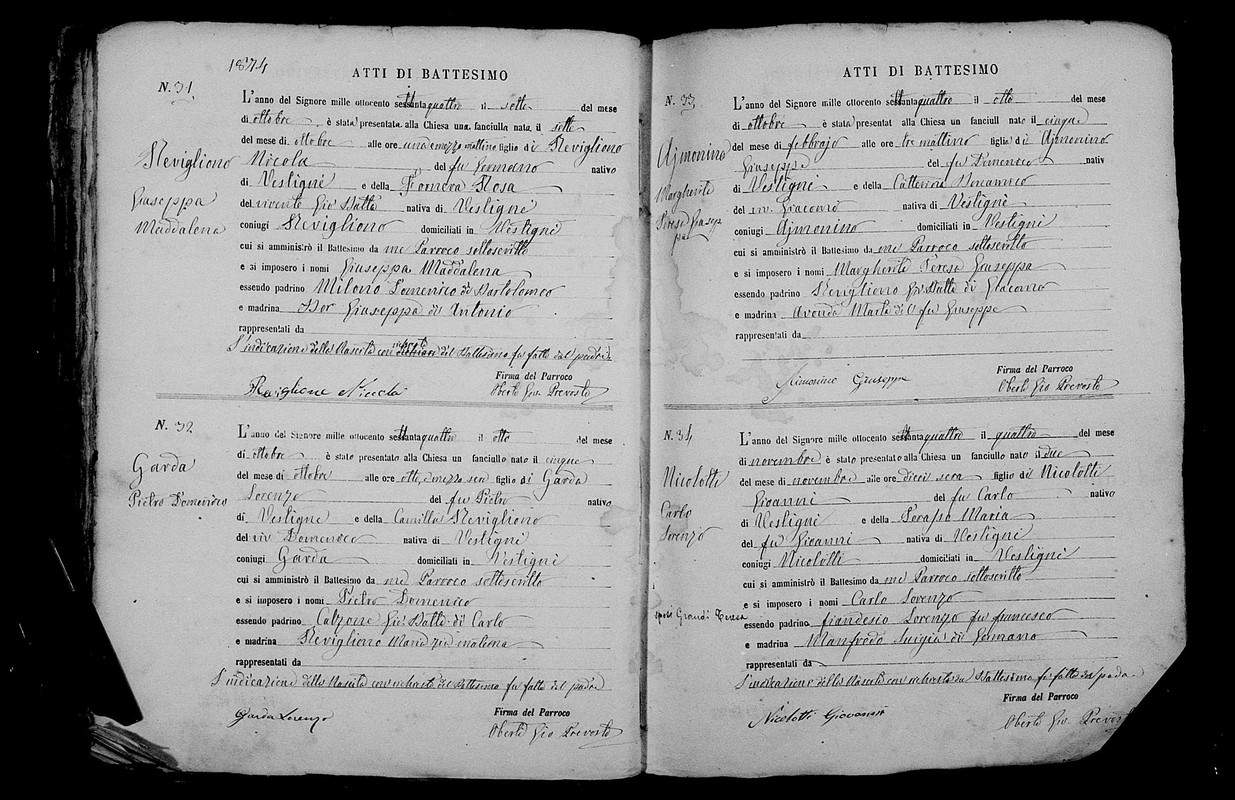 1874
ATTI DI BATTESIMO
N. 31
Nevigliono
Giuseppa
Maddalena
L'anno del Signore mille ottocento settantaquattro il sette del mese
di ottobre è stata presentata alla Chiesa una fanciulla nata il sette
del mese di ottobre alle ore una e mezzo mattino figlia di Nevigliono
Nicola del fu Germano nativo
di Vestignè e della Fornera Rosa
del vivente Gio Batta nativa di Vestignè
coniugi Nevigliono domiciliati in Vestignè
cui si amministrò il Battesimo da me Parroco sottoscritto
e si imposero i nomi Giuseppa Maddalena
essendo padrino Milono Domenico di Bartolomeo
e madrina Giuseppa di Antonio
rappresentati da
L'indicazione della Nascita con del Battesimo fu fatta dal padre
Firma del Parroco
Oberto Gio. Prevosto
N. 32
Garda
Pietro Domenico
L'anno del Signore mille ottocento settantaquattro il otto del mese
di ottobre è stato presentato alla Chiesa un fanciullo nato il cinque
del mese di ottobre alle ore otto e mezzo sera figlio di Garda
Lorenzo del fu Pietro nativo
di Vestignè e della Camilla Nevigliono
del viv Domenico nativa di Vestignè
coniugi Garda domiciliati in Vestignè
cui si amministrò il Battesimo da me Parroco sottoscritto
e si imposero i nomi Pietro Domenico
essendo padrino Calzone Gio Batta di Carlo
e madrina Nevigliono Maria zia materna
rappresentati da
L'indicazione della Nascita con richiesta del Battesimo fu fatta dal padre
Firma del Parroco
Garda Lorenzo Oberto Gio Prevosto
ATTI DI BATTESIMO
N. 33
Ajmonino
Margherita
Teresa Giusep
pa
L'anno del Signore mille ottocento settantaquattro il otto del mese
di ottobre è stata presentat alla Chiesa un fanciull nato il cinque
del mese di febbrajo alle ore tre mattino figlia di Ajmonino
Giuseppe del fu Domenico nativ
di Vestignè e della Catterina
del viv. Giacomo nativa di Vestignè
coniugi Ajmonino domiciliati in Vestignè
cui si amministrò il Battesimo da me Parroco sottoscritto
e si imposero i nomi Margherita Teresa Giuseppa
essendo padrino Nevigliono Gio Batta di Giacomo
e madrina Avondo Marta del fu Giuseppe
rappresentati da
Firma del Parroco
Aimonino Giuseppe Oberto Gio Prevosto
N. 34
Nicolotti
Carlo
Lorenzo
L'anno del Signore mille ottocento settantaquattro il quattro del mese
di novembre è stato presentato alla Chiesa un fanciullo nato il due
del mese di novembre alle ore dieci sera figlio di Nicolotti
Gioanni del fu Carlo nativo
di Vestignè e della Perasso Maria
del fu Gioanni nativa di Vestignè
coniugi Nicolotti domiciliati in Vestignè
cui si amministrò il Battesimo da me Parroco sottoscritto
e si imposero i nomi Carlo Lorenzo
Grandi Teresa
essendo padrino Lorenzo fu Francesco
e madrina Manfredo Luigia di Germano
rappresentati da
L'indicazione della Nascita con richiesta del Battesimo fu fatta dal padre
Firma del Parroco
Nicolotti Giovanni Oberto Gio. Prevosto